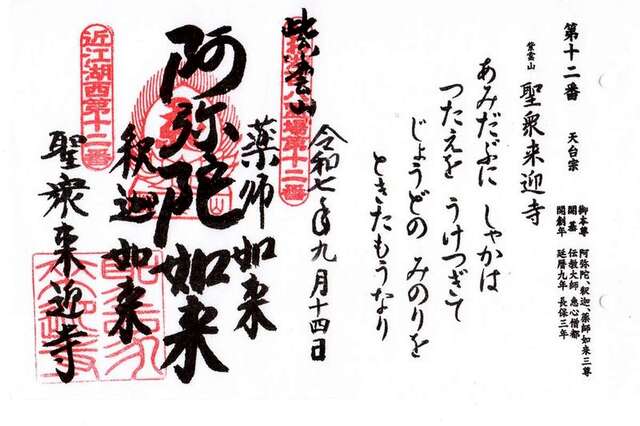 第十二番 天台宗
紫雲山 聖衆来迎寺
御本尊 阿弥陀、釈迦、薬師如来三尊
開基 伝教大師 恵心僧都
開創年 延暦九年 長保三年
あみだぶに しゃかは
つたえを うけつぎて
じょうどの みのりを
ときたもうなり
令和七年九月十四日
紫雲山
薬師如来
阿弥陀如来
釈迦如来
聖衆来迎寺
場第十二番
近江湖西第十二番